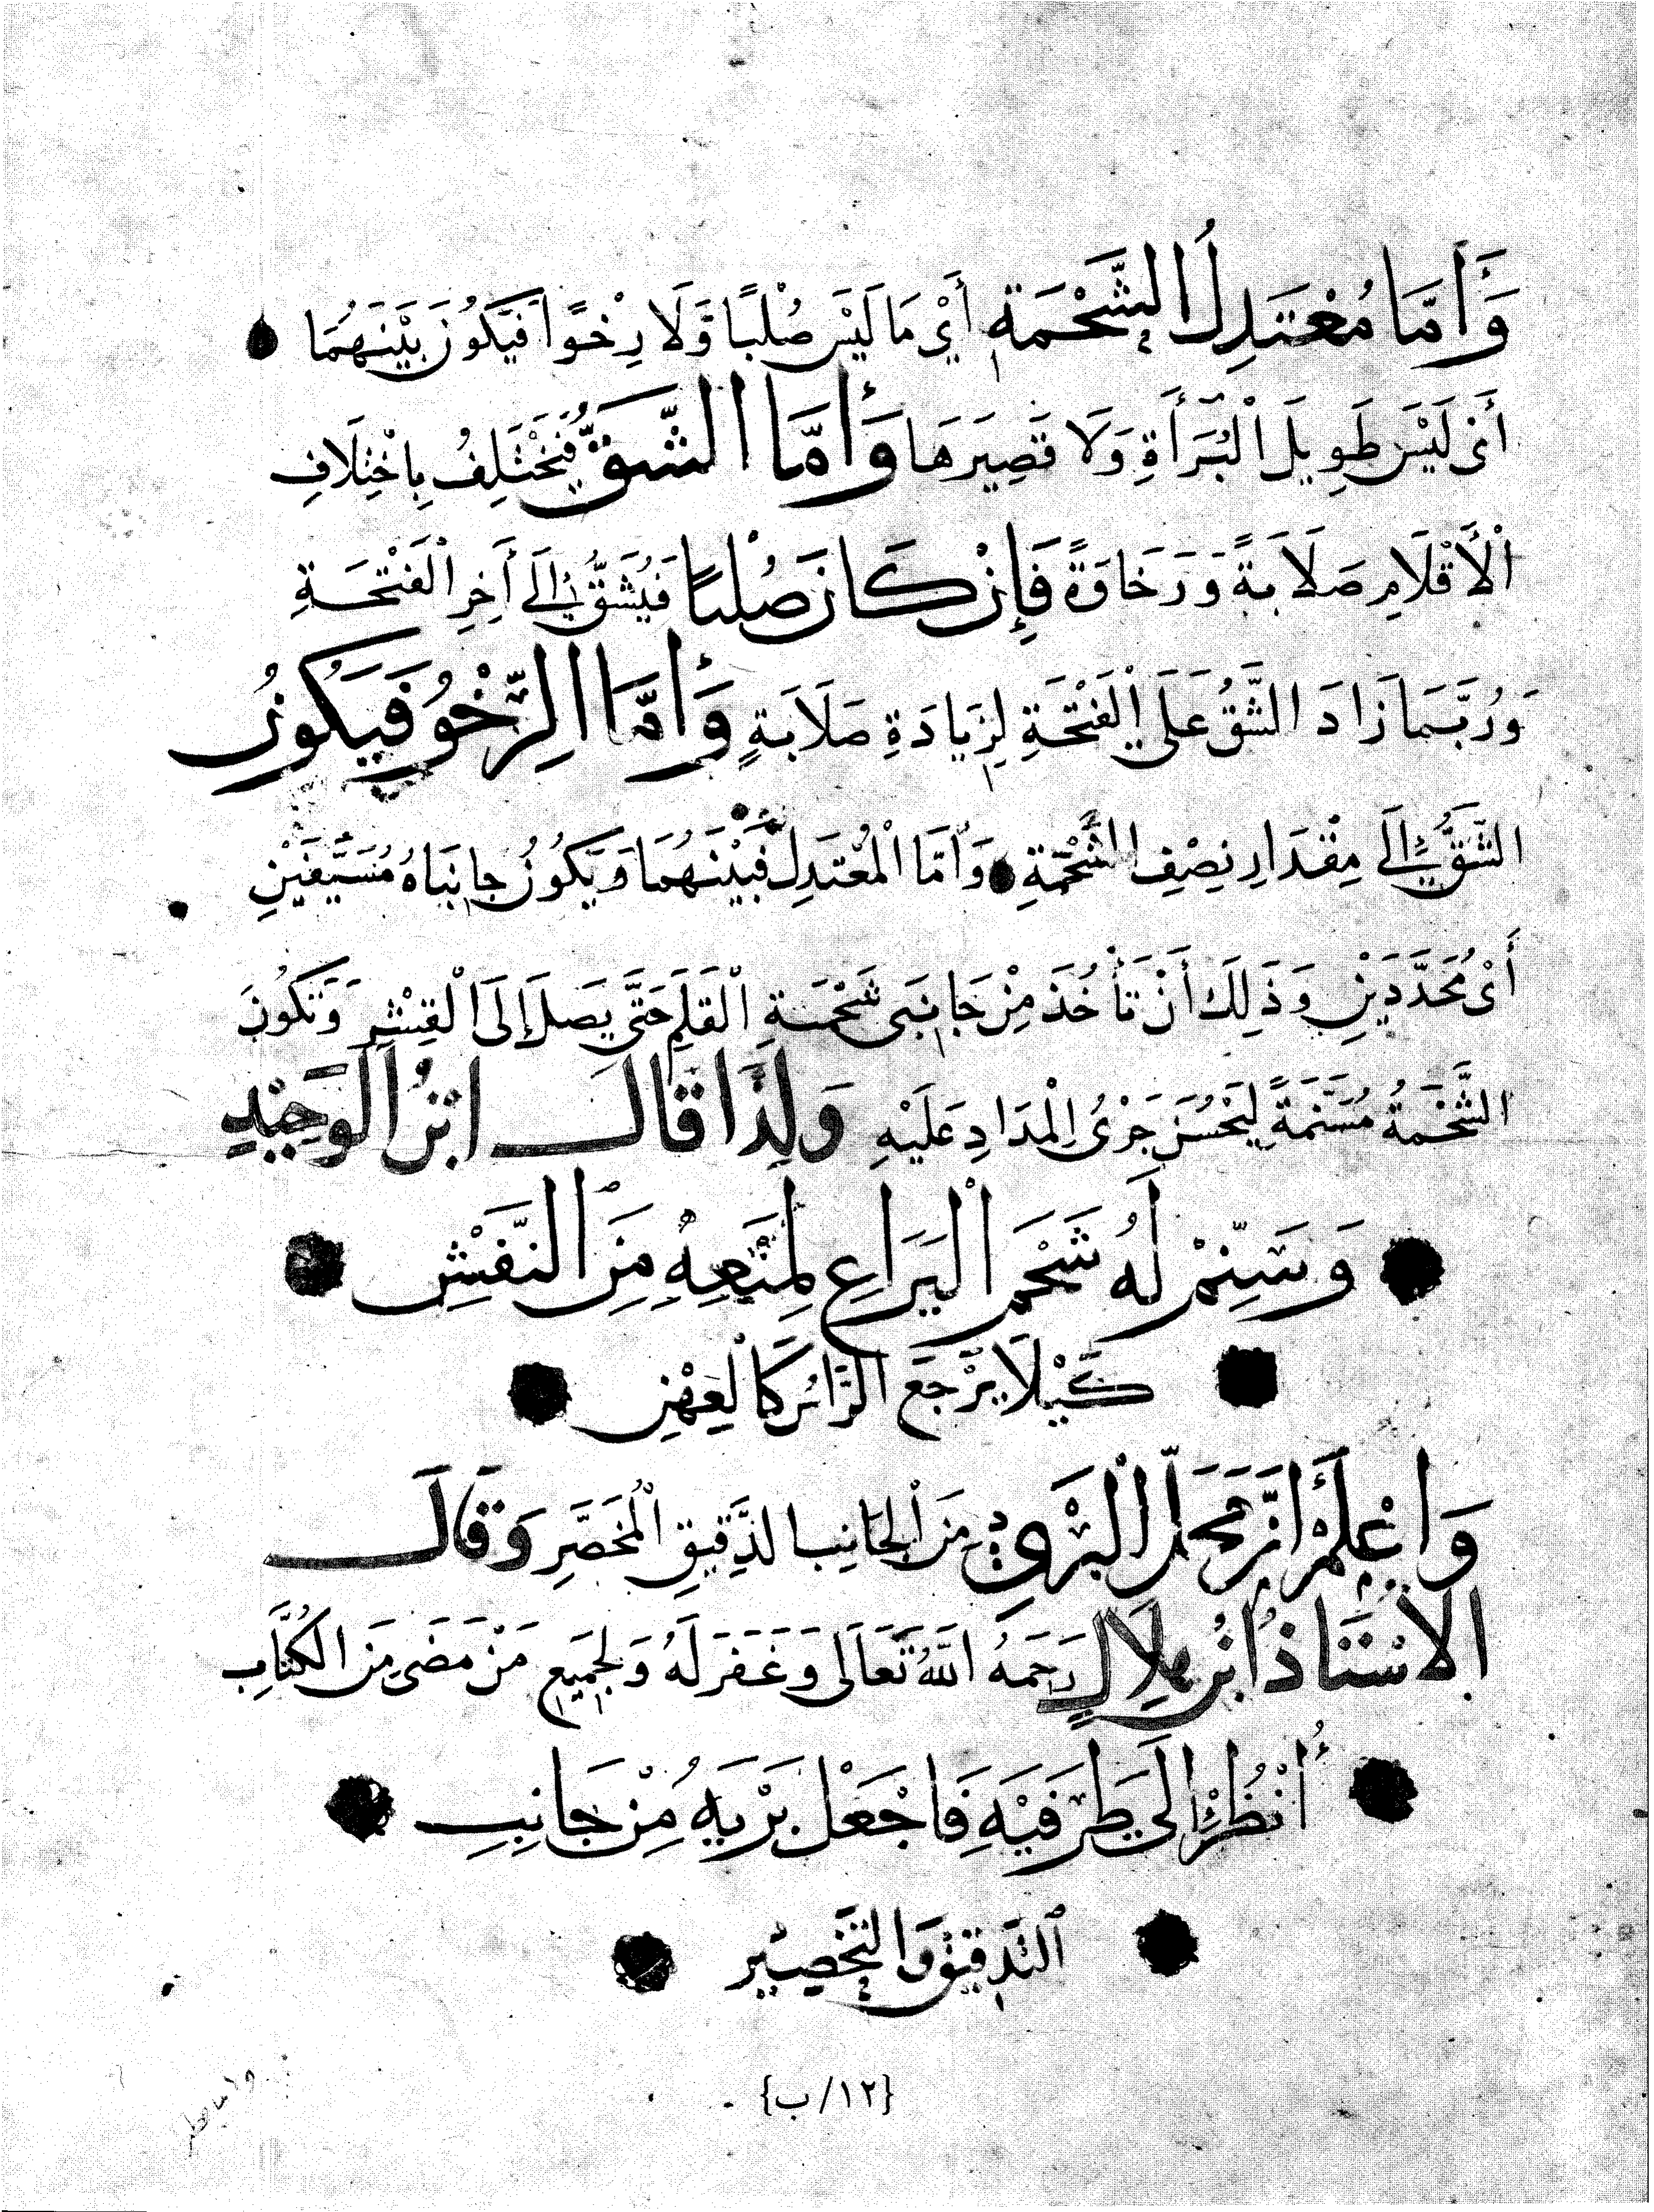 وَأَمَّا مُعْتَدِلُ الشَّحْمَةِ أَيْ مَا لَيْسَ صُلْبًا وَّلَا رِخْوًا فَيَكُونُ بَيْنَهُمَا
أَىْ لَيْسَ طَوِيلَ الْبُرْأَةِ وَلَا قَصِيرَهَا وَأَمَّا الشَّقُّ فَيَخْتَلِفُ بِاخْتِلَافِ
الْأَقْلَامِ صَلَابَةً وَرَخَاوَةً فَإِنْ كَانَ صُلْبًا فَيُشَقُّ إِلَى أَخِرِ الْفَتْحَةِ
وَرُبَّمَا زَادَ الشَّقُّ عَلَى الْفَتْحَةِ لِزِيَادَةِ صَلَابَةٍ وَأَمَّا الرِّخْوُ فَيَكُونُ
الشَّقُّ إِلَى مِقْدَارِ نِصْفِ الشَّحْمَةِ وَأَمَّا الْمُعْتَدِلُ فَبَيْنَهُمَا وَيَكُونُ جَانِبَاهُ مُسَيَّفَيْنِ
أَىْ مُحَدَّدَيْنِ وَذَلِكَ أَنْ تَأْخُذَ مِنْ جَانِبَى شَحْمَةِ الْقَلَمِ حَتَّى يَصِلَ إِلَى الْقِشْرِ وَتَكُونَ
الشَّحْمَةُ مُسَنَّمَةً لِيَحْسُنَ جَرْىُ الْمِدَادِ عَلَيْهِ وَلِذَا قَالَ ابْنُ الْوَحِيدِ
وَسَنِّمْ لَهُ شَحْمَ الْيَرَاعِ لِمَنْعِهِ مِنَ النَّفْشِ
كَيْلَا يَرْجَعَ الزَّائِرُ كَالْعِهْنِ
وَاعْلَمْ أَنَّ مَحَلَّ الْبَرْىِ مِنَ الْجَانِبِ الدَّقِيقِ الْمُخَصَّرِ وَقَالَ
الْأُسْتَاذُ ابْنُ هِلَالٍ رَحِمَهُ اللَّهُ تَعَالَى وَغَفَرَ لَهُ وَلِجَمِيعِ مَنْ مَضَى مِنَ الْكُتَّابِ
أُنْظُرْ إِلَى طَرَفَيْهِ فَاجْعَلْ بَرْيَهُ مِنْ جَانِبِ
التَّدْقِيقِ وَالتَّخْصِيرِ
{١٢/ب}